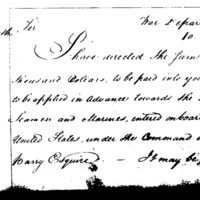 Sir War Depar
10
I have directed the sum
thousand Dollars, to be paid into you
to be applied in advance towards the
Seamen and Marines, entered on boar
United States, under the Command o
Barry Esquire — It may be